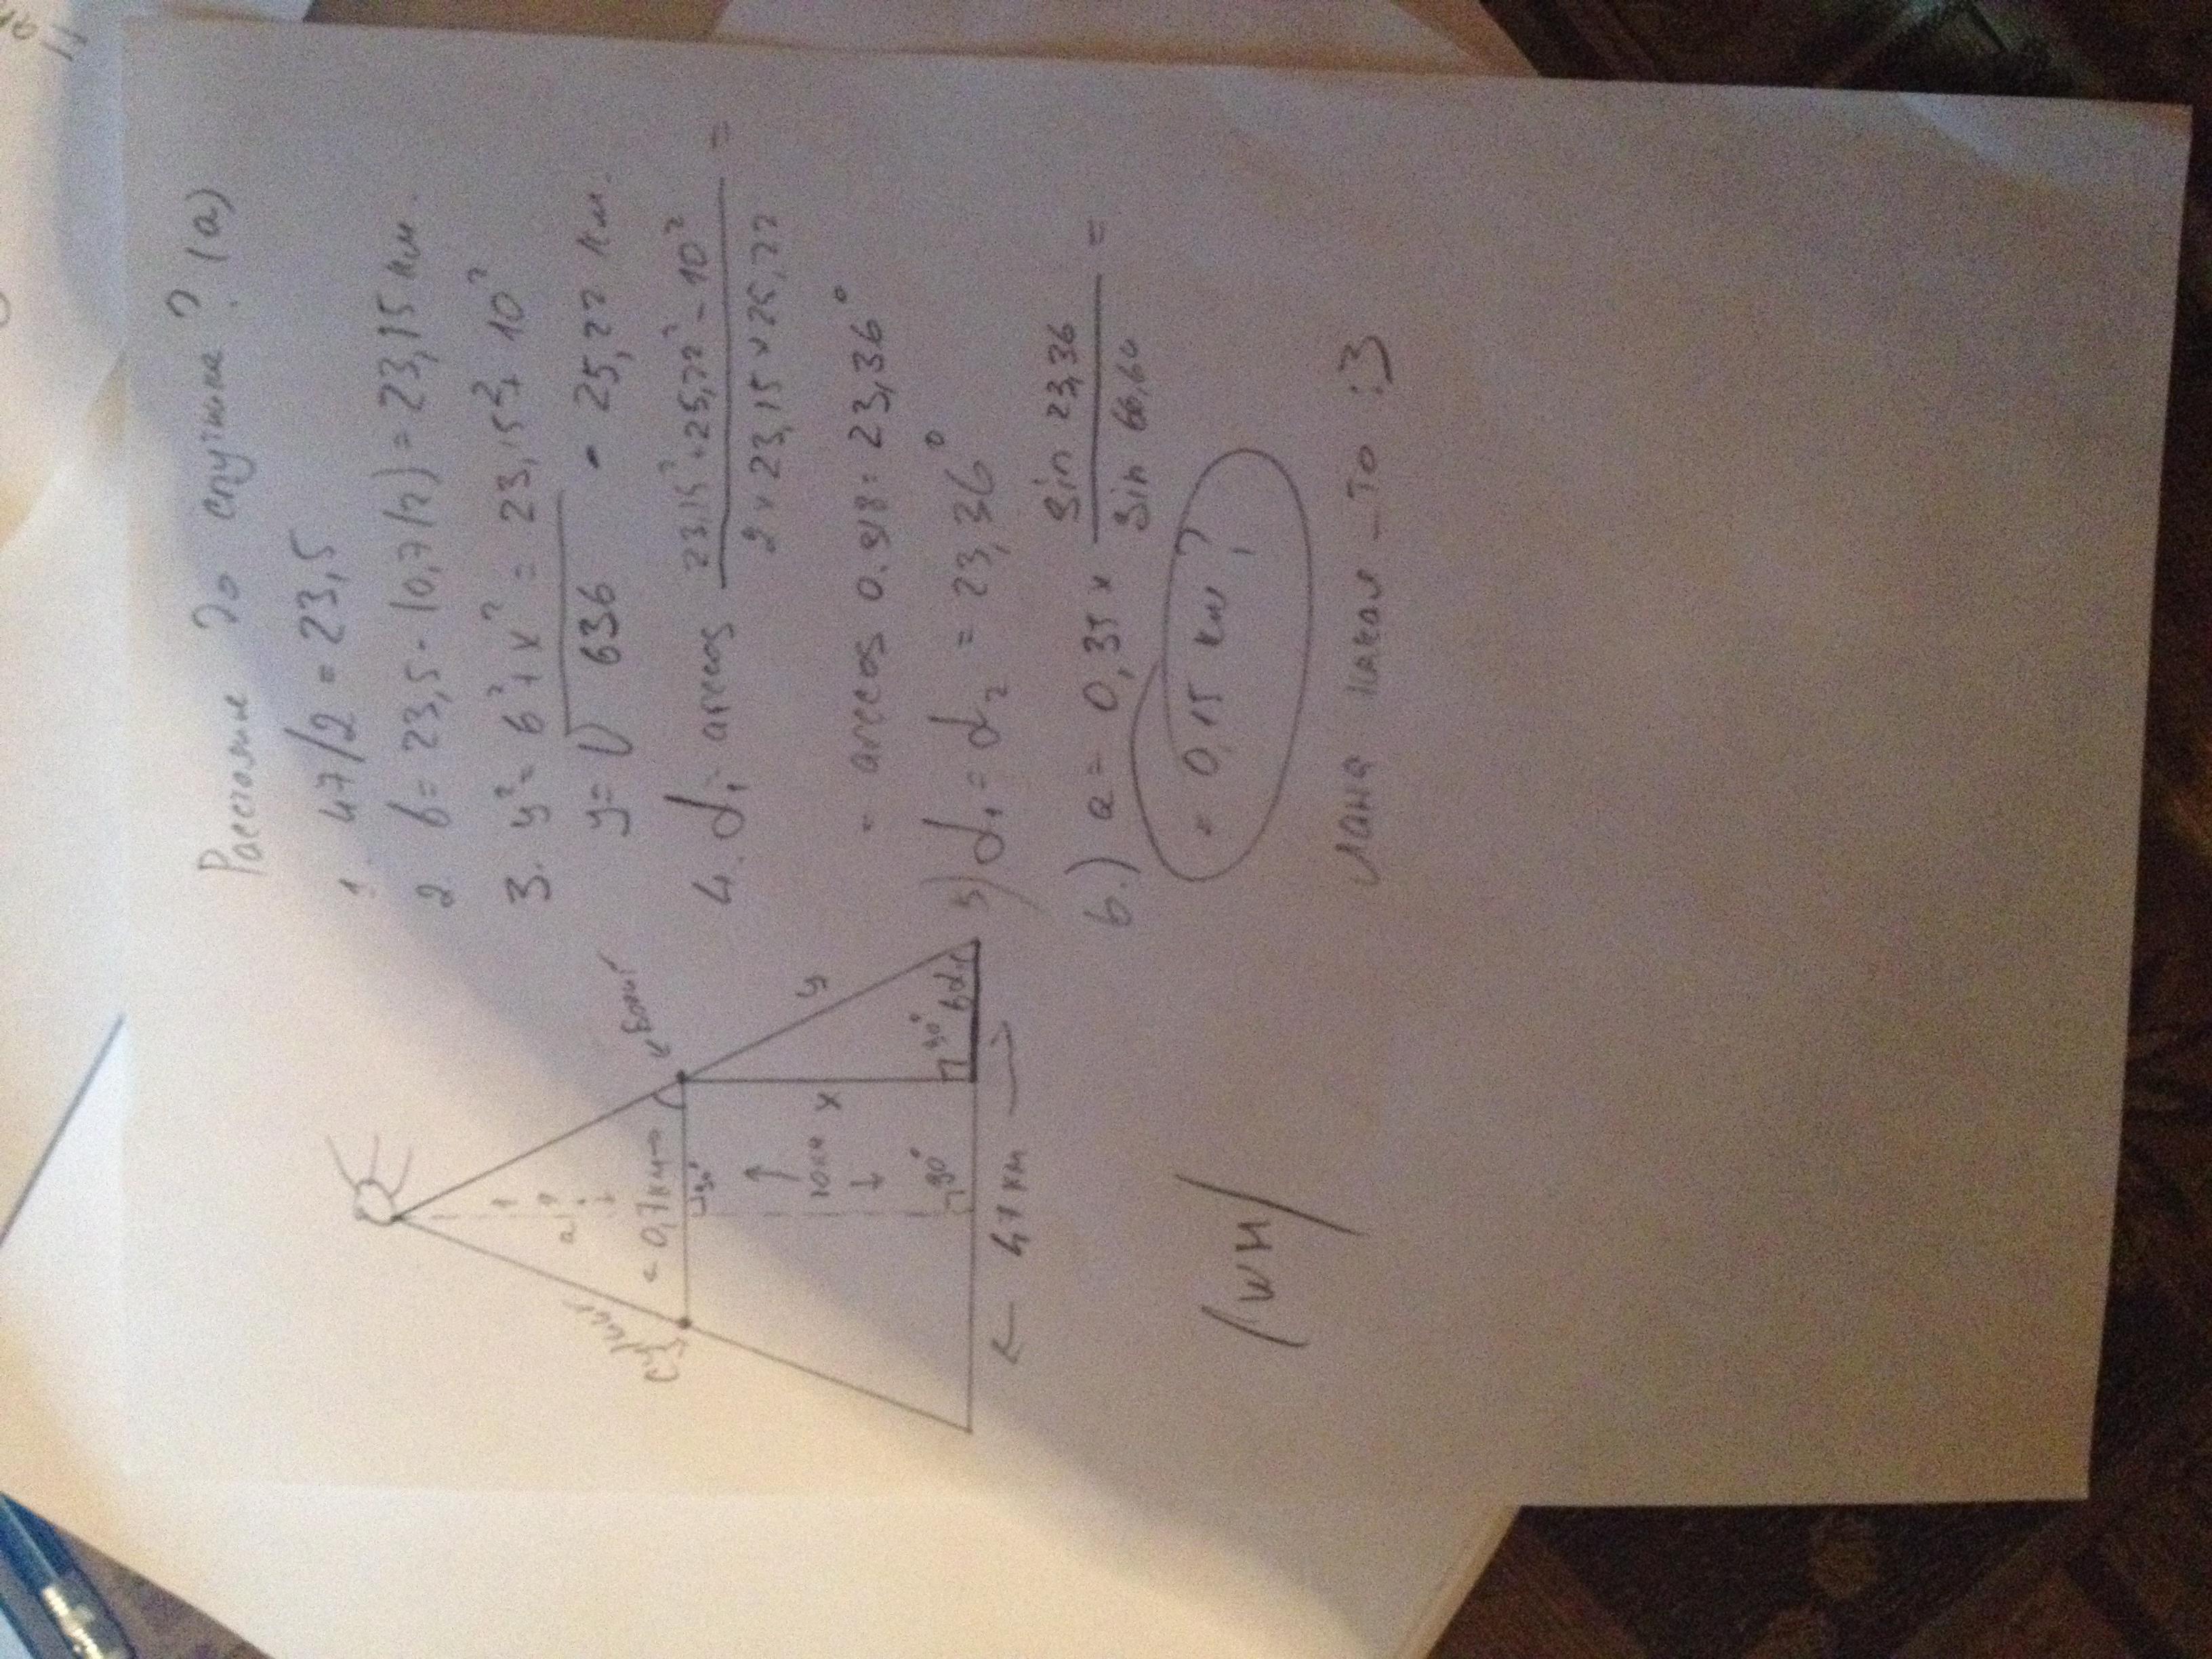 Расстояние до спутника? (a)
1. 47/2 = 23,5
2. b = 23,5 - (0,7/2) = 23,15 км.
3. y² = b² + x² = 23,15² + 10²
y = √636 = 25,22 км.
4. α₁ = arccos (23,15² + 25,22² - 10²) / (2 × 23,15 × 25,22) =
= arccos 0.918 = 23,36°
5) α₁ = α₂ = 23,36°
6.) a = 0,35 × sin 23,36 / sin 66,64 =
= 0,15 км?
лажа какая-то :3
a = ?
< 0,7 км →
90°
10км
x
y
90°
90°
b
α₁
← 47 км →